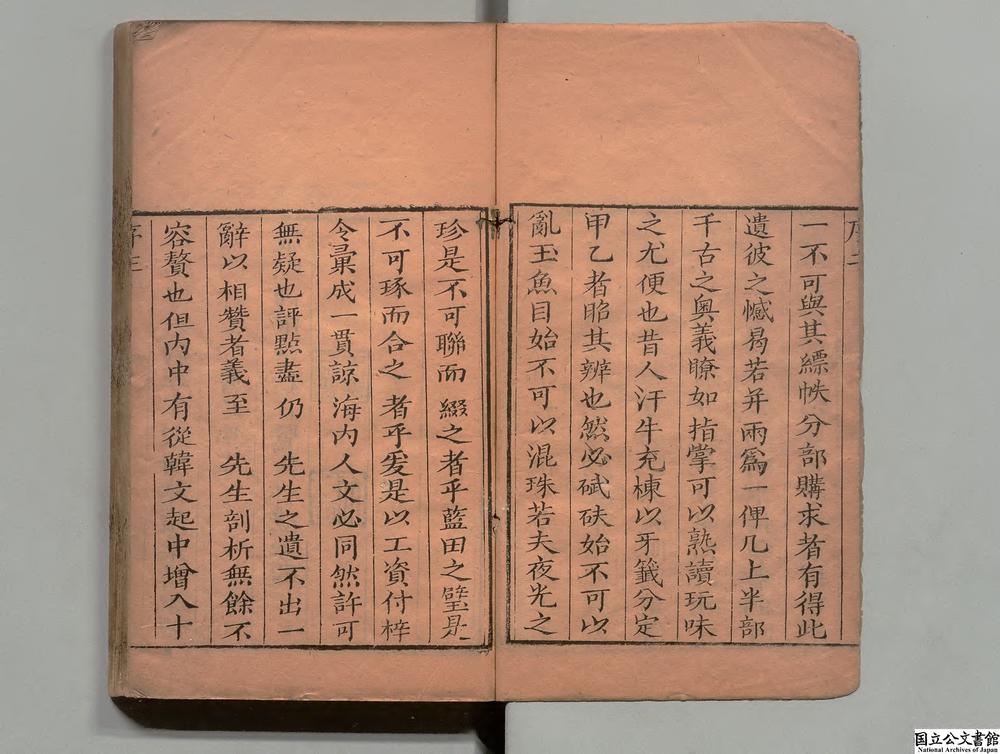 序二
一不可與其縹帙分部購求者有得此
遺彼之憾曷若并兩爲一俾几上半部
千古之奧義瞭如指掌可以熟讀玩味
之尤便也昔人汗牛充棟以牙籤分定
甲乙者昭其辨也然必碔砆始不可以
亂玉魚目始不可以混珠若夫夜光之
珍是不可聯而綴之者乎藍田之璧是
不可琢而合之者乎爰是以工資付梓
令彙成一貫諒海内人文必同然許可
無疑也評點盡仍先生之遺不出一
辭以相贊者義至先生剖析無餘不
容贅也但内中有從韓文起中增入十
序三
国立公文書館
National Archives of Japan